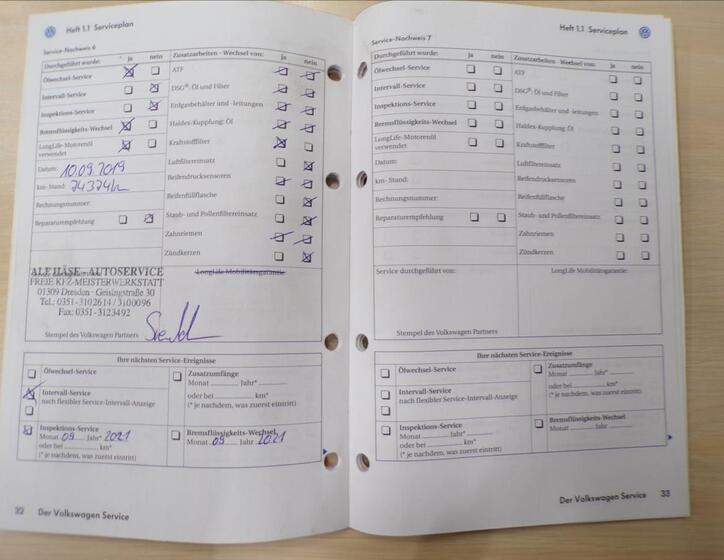 Heft 1.1 Serviceplan
Service-Nachweis 6
Durchgeführt wurde: ja nein
Ölwechsel-Service
Intervall-Service
Inspektions-Service
Bremsflüssigkeits-Wechsel
LongLife-Motorenöl
verwendet
Datum: 10.09.2019
km-Stand:
Rechnungsnummer:
Reparaturempfehlung
Zusatzarbeiten - Wechsel von: ja nein
ATF
DSG®: Öl und Filter
Erdgasbehälter und -leitungen
Haldex-Kupplung: Öl
Kraftstofffilter
Luftfiltereinsatz
Reifendrucksensoren
Reifenfüllflasche
Staub- und Pollenfiltereinsatz
Zahnriemen
Zündkerzen
ALF HÄSE - AUTOSERVICE
FREIE KFZ-MEISTERWERKSTATT
01309 Dresden - Geisingstraße 30
Tel.: 0351-3102614 / 3100096
Fax: 0351-3123492
LongLife Mobilitätsgarantie:
Stempel des Volkswagen Partners
Ihre nächsten Service-Ereignisse
Ölwechsel-Service
Intervall-Service
nach flexibler Service-Intervall-Anzeige
Inspektions-Service
Monat 09 Jahr* 2021
oder bei km*
(* je nachdem, was zuerst eintritt)
Zusatzumfänge
Monat Jahr*
oder bei km*
(* je nachdem, was zuerst eintritt)
Bremsflüssigkeits-Wechsel
Monat 09 Jahr 2021
32 Der Volkswagen Service
Heft 1.1 Serviceplan
Service-Nachweis 7
Durchgeführt wurde: ja nein
Ölwechsel-Service
Intervall-Service
Inspektions-Service
Bremsflüssigkeits-Wechsel
LongLife-Motorenöl
verwendet
Datum:
km-Stand:
Rechnungsnummer:
Reparaturempfehlung
Zusatzarbeiten - Wechsel von: ja nein
ATF
DSG®: Öl und Filter
Erdgasbehälter und -leitungen
Haldex-Kupplung: Öl
Kraftstofffilter
Luftfiltereinsatz
Reifendrucksensoren
Reifenfüllflasche
Staub- und Pollenfiltereinsatz
Zahnriemen
Zündkerzen
Service durchgeführt von:
LongLife Mobilitätsgarantie:
Stempel des Volkswagen Partners
Ihre nächsten Service-Ereignisse
Ölwechsel-Service
Intervall-Service
nach flexibler Service-Intervall-Anzeige
Inspektions-Service
Monat Jahr*
oder bei km*
(* je nachdem, was zuerst eintritt)
Zusatzumfänge
Monat Jahr*
oder bei km*
(* je nachdem, was zuerst eintritt)
Bremsflüssigkeits-Wechsel
Monat Jahr
Der Volkswagen Service 33